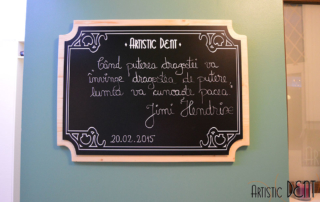 • Artistic Dent •
"Când puterea dragostei va
învinge dragostea de putere,
lumea va cunoaște pacea"
Jimi Hendrix
20.02.2015
Artistic DENT